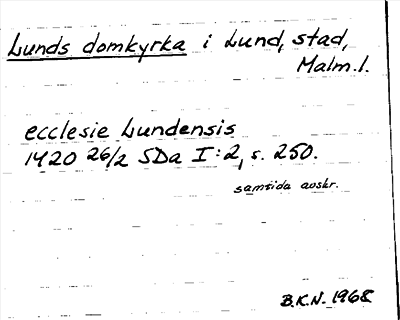 Lunds domkyrka i Lund, stad,
Malm.l.
ecclesie Lundensis
1420 26/2 SDa I:2, s. 250.
samtida avskr.
B.K.N. 1968